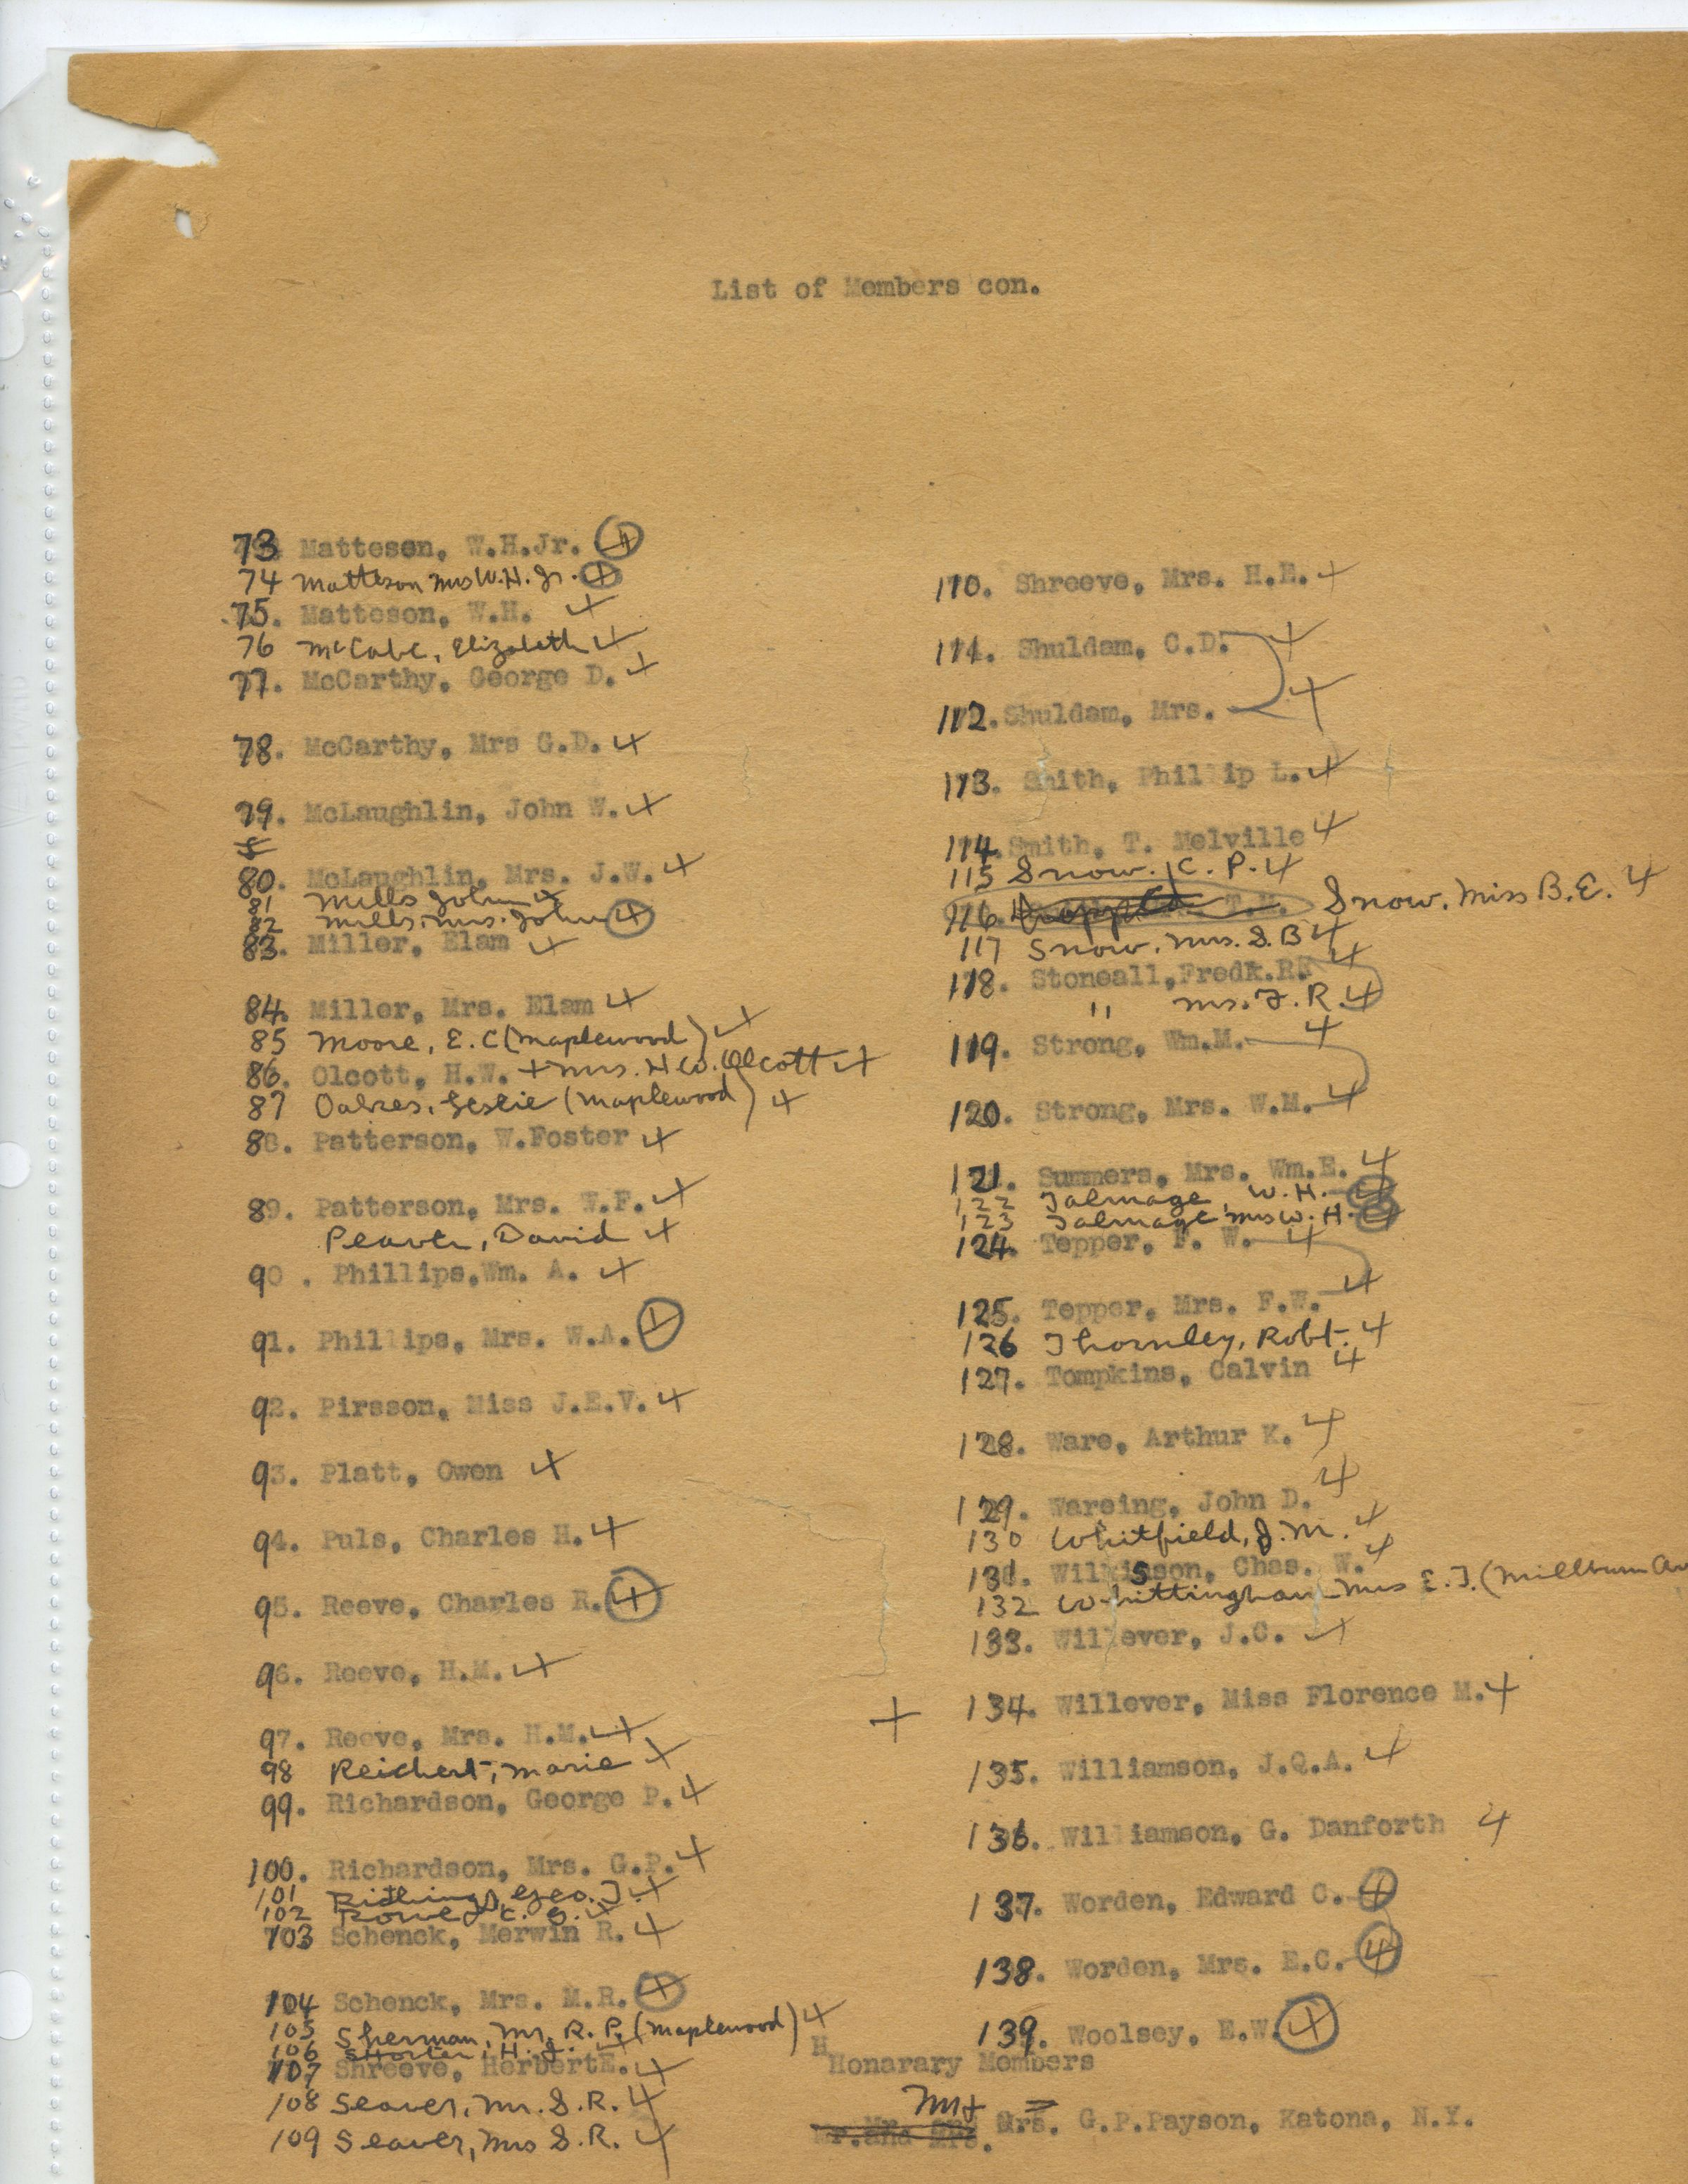 List of Members con.
73 Matteson, W.H.Jr.
74 Matteson Mrs W.H. Jr.
75. Matteson, W.H.
76 McCabe, Elizabeth
77. McCarthy, George D.
78. McCarthy, Mrs G.D.
79. McLaughlin, John W.
80. McLaughlin, Mrs. J.W.
81 Mills John
82 Mills, Mrs. John
83. Miller, Elam
84. Miller, Mrs. Elam
85 Moore, E.C (Maplewood)
86. Olcott, H.W. + Mrs. H W. Olcott
87 Oakes, Leslie (Maplewood)
88. Patterson, W.Foster
89. Patterson, Mrs. W.F.
Peaver, David
90 . Phillips,Wm. A.
91. Phillips, Mrs. W.A.
92. Pirsson, Miss J.E.V.
93. Platt, Owen
94. Puls, Charles H.
95. Reeve, Charles R.
96. Reeve, H.M.
97. Reeve, Mrs. H.M.
98 Reichert, Marie
99. Richardson, George P.
100. Richardson, Mrs. G.P.
101 Geo. J.
102 C. S.
103 Schenck, Merwin R.
104 Schenck, Mrs. M.R.
105 Sherman, Mr. R. P. (Maplewood)
106 Shorter, H. J.
107 Shreeve, HerbertE.
108 Seaver, Mr. S.R.
109 Seaver, Mrs S.R.
110. Shreeve, Mrs. H.E.
111. Shuldam, C.D.
112. Shuldam, Mrs.
113. Smith, Phillip L.
114. Smith, T. Melville
115 Snow. C. P.
116. Dropped T.M. Snow, Miss B.E.
117 Snow, Mrs. S. B
118. Stoneall,Fredk.R.
" Mrs. F. R.
119. Strong, Wm.M.
120. Strong, Mrs. W.M.
121. Summers, Mrs. Wm.E.
122 Talmage, W.H.
123 Talmage Mrs W. H.
124. Tepper, F. W.
125. Tepper, Mrs. F.W.
126 Thornley, Robt.
127. Tompkins, Calvin
128. Ware, Arthur K.
129. Wareing, John D.
130 Whitfield, J.M.
131. Wilkinson, Chas. W.
132 Whittingham Mrs E.T. (Millburn Av
133. Willever, J.C.
134. Willever, Miss Florence M.
135. Williamson, J.Q.A.
136. Williamson, G. Danforth
137. Worden, Edward C.
138. Worden, Mrs. E.C.
139. Woolsey, E.W.
H
Honarary Members
Mr. and Mrs. Mrs. G.P.Payson, Katona, N.Y.